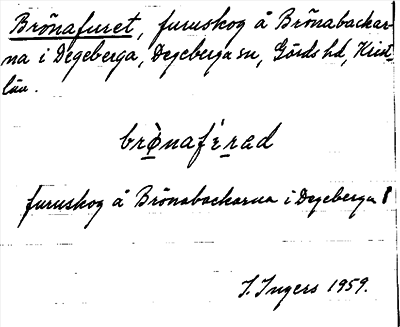 Brönafuret, furuskog å Brönabackar-
na i Degeberga, Degeberga sn, Gärds hd, Krist.
län.
brö̀nafʹerad
furuskog å Brönabackarna i Degeberga
I. Ingers 1959.